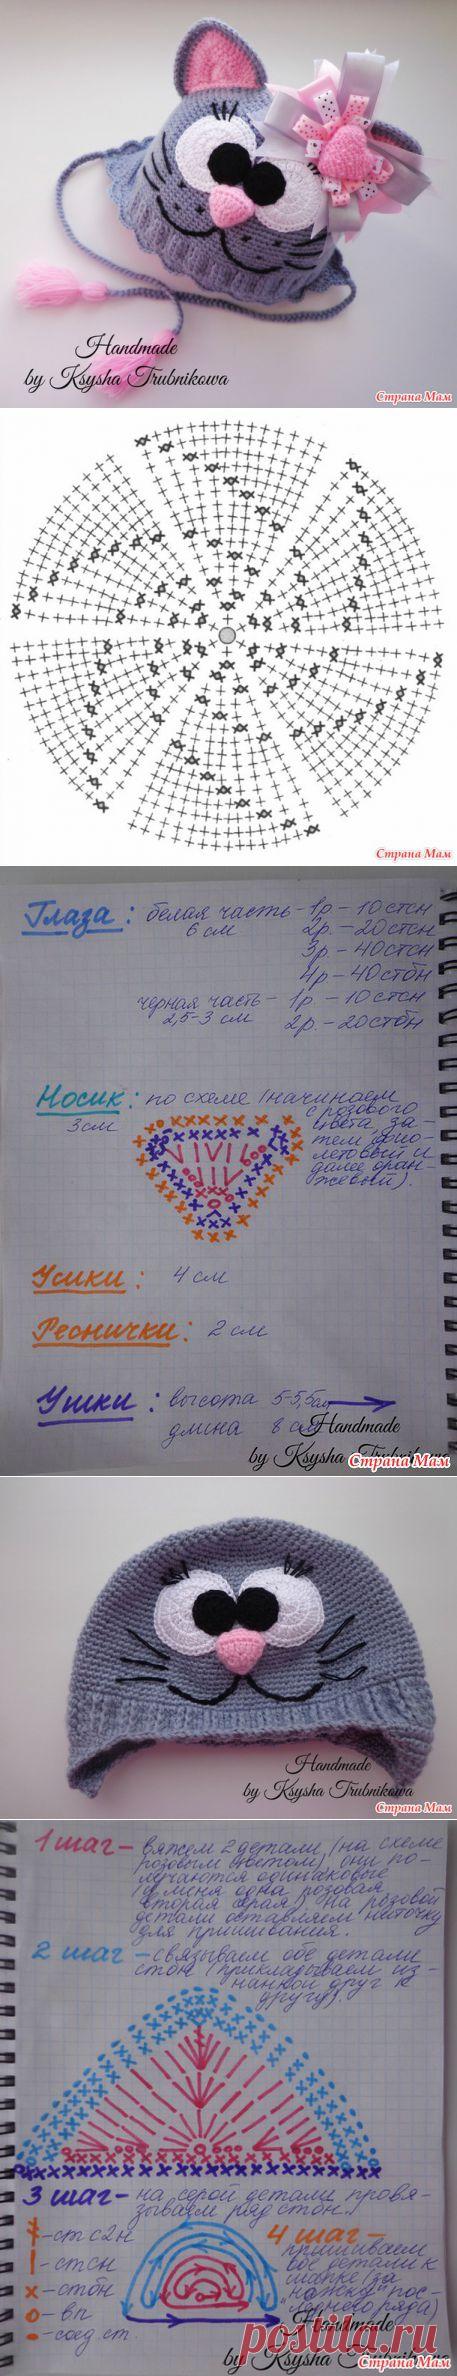 Handmade
by Ksysha Trubnikowa
Страна Мам
Страна Мам
Глаза: белая часть - 1р. - 10 стсн
6 см 2р. - 20 стсн
3р. - 40 стсн
4р. - 40 стбн
черная часть - 1р. - 10 стсн
2,5-3 см 2р. - 20 стбн
Носик: по схеме (начинаем
3 см с розового
цвета, за-
тем фио-
летовый и
далее оран-
жевый).
Усики: 4 см
Реснички: 2 см
Ушки: высота 5-5,5 см
длина 8 см
Handmade
by Ksysha Trubnikowa
Страна Мам
Handmade
by Ksysha Trubnikowa
Страна Мам
1 шаг - вяжем 2 детали (на схеме
розовым цветом) они по-
лучаются одинаковые
(у меня одна розовая
вторая серая) на розовой
детали оставляем ниточку
для пришивания.
2 шаг - связываем обе детали
стбн (прикладываем из-
нанкой друг к
другу).
3 шаг - на серой детали провя-
зываем ряд стбн.
- ст с2н
- стсн
х - стбн
о - вп
- соед. ст.
4 шаг -
пришиваем
обе детали к
шапке (за
"ножку" пос-
леднего ряда)
Handmade
by Ksysha Trubnikowa
Страна Мам